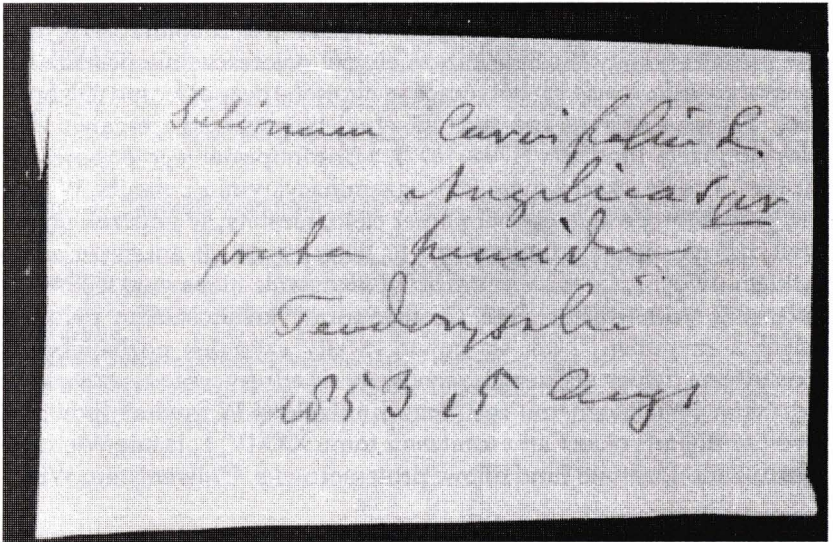 Selinum Carvifolia L.
Angelica Spr
prata humida
1853 15 Aug